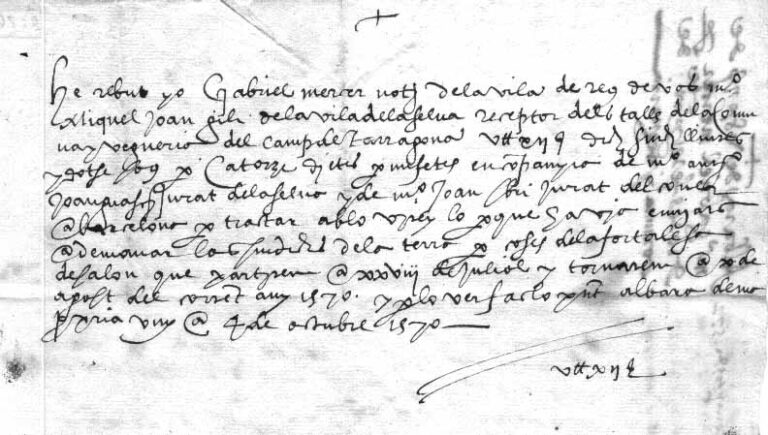 He rebut yo Gabriel mercer notj dela vila de req de vos m.º
Miquel Joan gili dela vila dela selva receptor dels talls dela Comu
na y vegueria del Camp de Tarragona vtt xij
y dotse Catorze dietes p mi fetes en companyia de m.º
Joan Jurat dela selva y de m.º Joan Jurat del
@ barcelona p tractar ab lo virey lo p que havia enviar
@ demanar los sindichs dela terra p coses dela fortalesa
de salou que partirem @ xxviij de Juliol y tornarem @ x de
agost del corrent any 1570. y p lo ver fas lo pnt albara de ma
ppria vuy @ 4 de octubre 1570
vtt xij